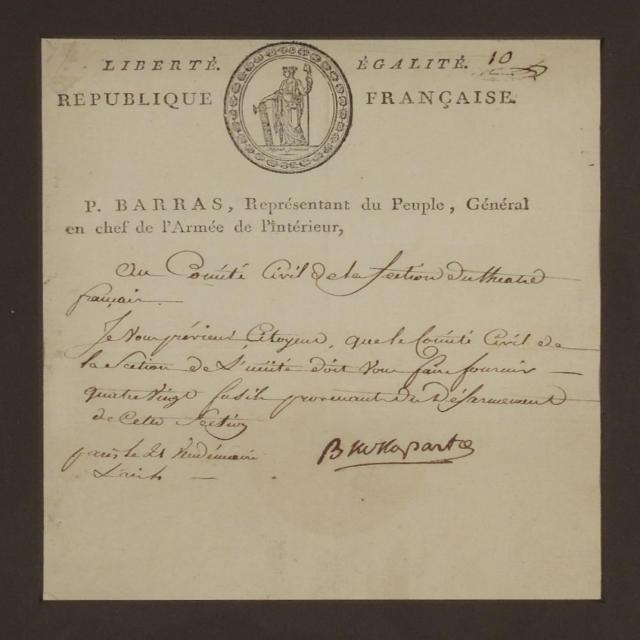 LIBERTÉ. ÉGALITÉ. 10
REPUBLIQUE FRANÇAISE.
P. BARRAS, Représentant du Peuple, Général
en chef de l'Armée de l'Intérieur,
Au Comité Civil de la Section du theatre
français
Je vous prévien Citoyens, que le Comité Civil de
la Section de L'unité doit vous faire fournir
quatre vingt fusils provenant du Désarmement
de Cette Section
paris le 21 Vendémiaire
L'an 4
Buonaparte